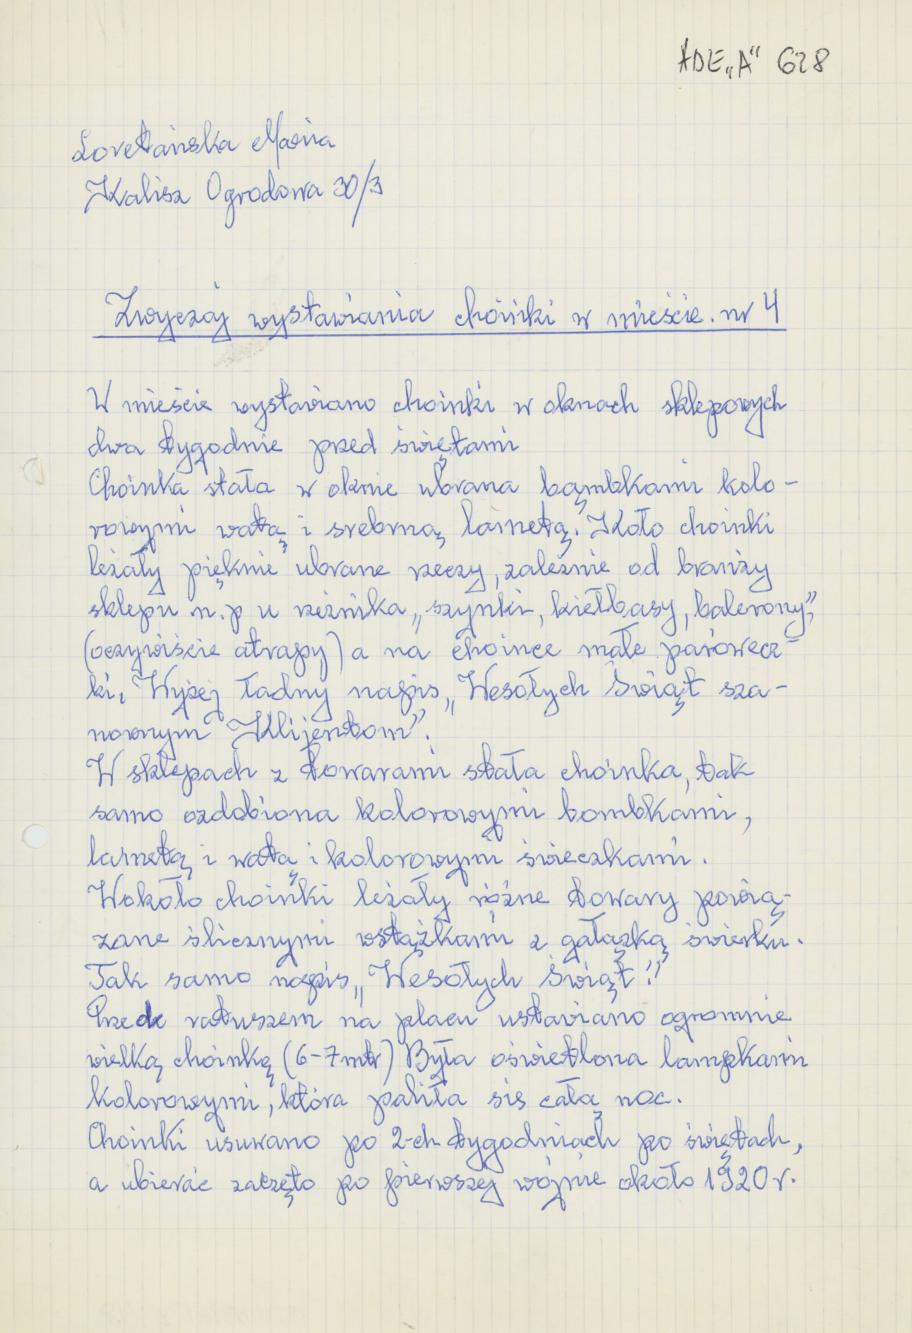 ADE„A" 628
Loretańska Maria
Kalisz Ogrodowa 30/3
Zwyczaj wystawiania choinki w mieście. nr 4
W mieście wystawiano choinki w oknach sklepowych
dwa tygodnie przed świętami
Choinka stała w oknie ubrana bąmbkami kolo-
rowymi watą i srebrną lametą. Koło choinki
leżały pięknie ubrane rzeczy, zależnie od branży
sklepu n.p u rzeźnika „szynki, kiełbasy, balerony"
(oczywiście atrapy) a na choince małe parówecz-
ki. Wyżej ładny napis „Wesołych Świąt sza-
nownym Klijentom".
W sklepach z towarami stała choinka, tak
samo ozdobiona kolorowymi bombkami,
lametą i watą i kolorowymi świeczkami.
Wokoło choinki leżały różne towary powią-
zane ślicznymi wstążkami z gałązką świerku.
Tak samo napis „Wesołych Świąt"!
Przede ratuszem na placu ustawiano ogromnie
wielką choinkę (6-7mtr) Była oświetlona lampkami
kolorowymi, która paliła się całą noc.
Choinki usuwano po 2-ch tygodniach po świętach,
a ubierać zaczęto po pierwszej wojnie około 1920 r.